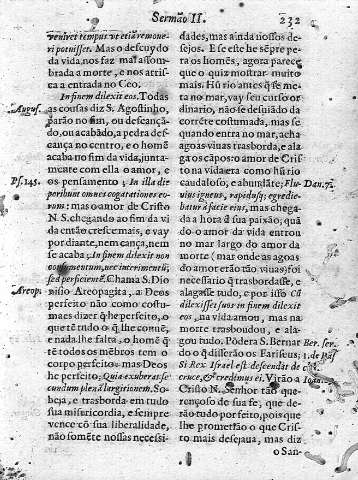 Sermão II. 232
veniret tempus vt etiã remoue-
ri potuisset. Mas o descuydo
da vida, nos faz mal assom-
brada a morte, e nos arris-
ca a entrada no Ceo.
In finem dilexit eos. Todas
Augus. as cousas diz S. Agostinho,
parão no fim, ou descançã-
do, ou acabãdo, a pedra des-
cança no fim do cẽtro, e o homẽ
acaba no fim da vida, junta-
mente com ella o amor, e
Ps. 145. os pensamento; In illa die
peribunt omnes cogitationes eo-
rum: mas o amor de Cristo
N. S. chegando ao fim da vi
da então cresce mais, e vay
por diante, nem cança, nem
se acaba; In finem dilexit non
consumentum, nec interimentẽ,
sed perficientẽ. Chama S. Dio
Areop. nisio Areopagita, a Deos
perfeito não como costu-
maes dizer q̃ he perfeito, o
que tẽ tudo o q̃ lhe conuẽ,
e nada lhe falta, o homẽ q̃
tẽ todos os mẽbros tem o
corpo perfeito: mas Deos
he perfeito, Quia exuberat se-
cundum plenã largitionem, So-
beja, e trasborda em tudo
sua misericordia, e sempre
vence cõ sua liberalidade,
não sómẽte nossas necessi-
dades, mas ainda nossos de-
sejos. E se este he sẽpre pe-
ra os homẽs, agora parece
que o quiz mostrar muito
mais. Hũ rio antes q̃ se me-
ta no mar, vay seu curso or
dinario, não se desuia da
corrẽte costumada, mas se
quando entra no mar, acha
agoas viuas trasborda, e ala-
ga os cãpos: o amor de Cris-
to na vida era como hũ rio
caudaloso, e abundãte; Flu- Dan. 7.
uius igneus, rapidusq; egredie-
batur à facie eius, mas chega-
da a hora de sua paixão, quã
do o amor da vida entrou
no mar largo do amor da
morte (mar onde as agoas
do amor erão tão viuas) foi
necessario q̃ trasbordasse, e
alagasse tudo, e por isso Cũ
dilexisset suos in finem dilexit
eos, na vida amou, mas na
morte trasbordou, e ala-
gou tudo. Põdera S. Bernar Ber. ser.
do o q̃ disserão os Fariseus; 1. de Pas
Si Rex Israel est descendat de c. N.
cruce, & credimus ei. Virão a Ioan.
Cristo N. Senhor tão que
rençoso de sua fe, que de-
rão tudo por feito, pois que
lhe prometião o que Cris-
to mais desejaua, mas diz
o San-